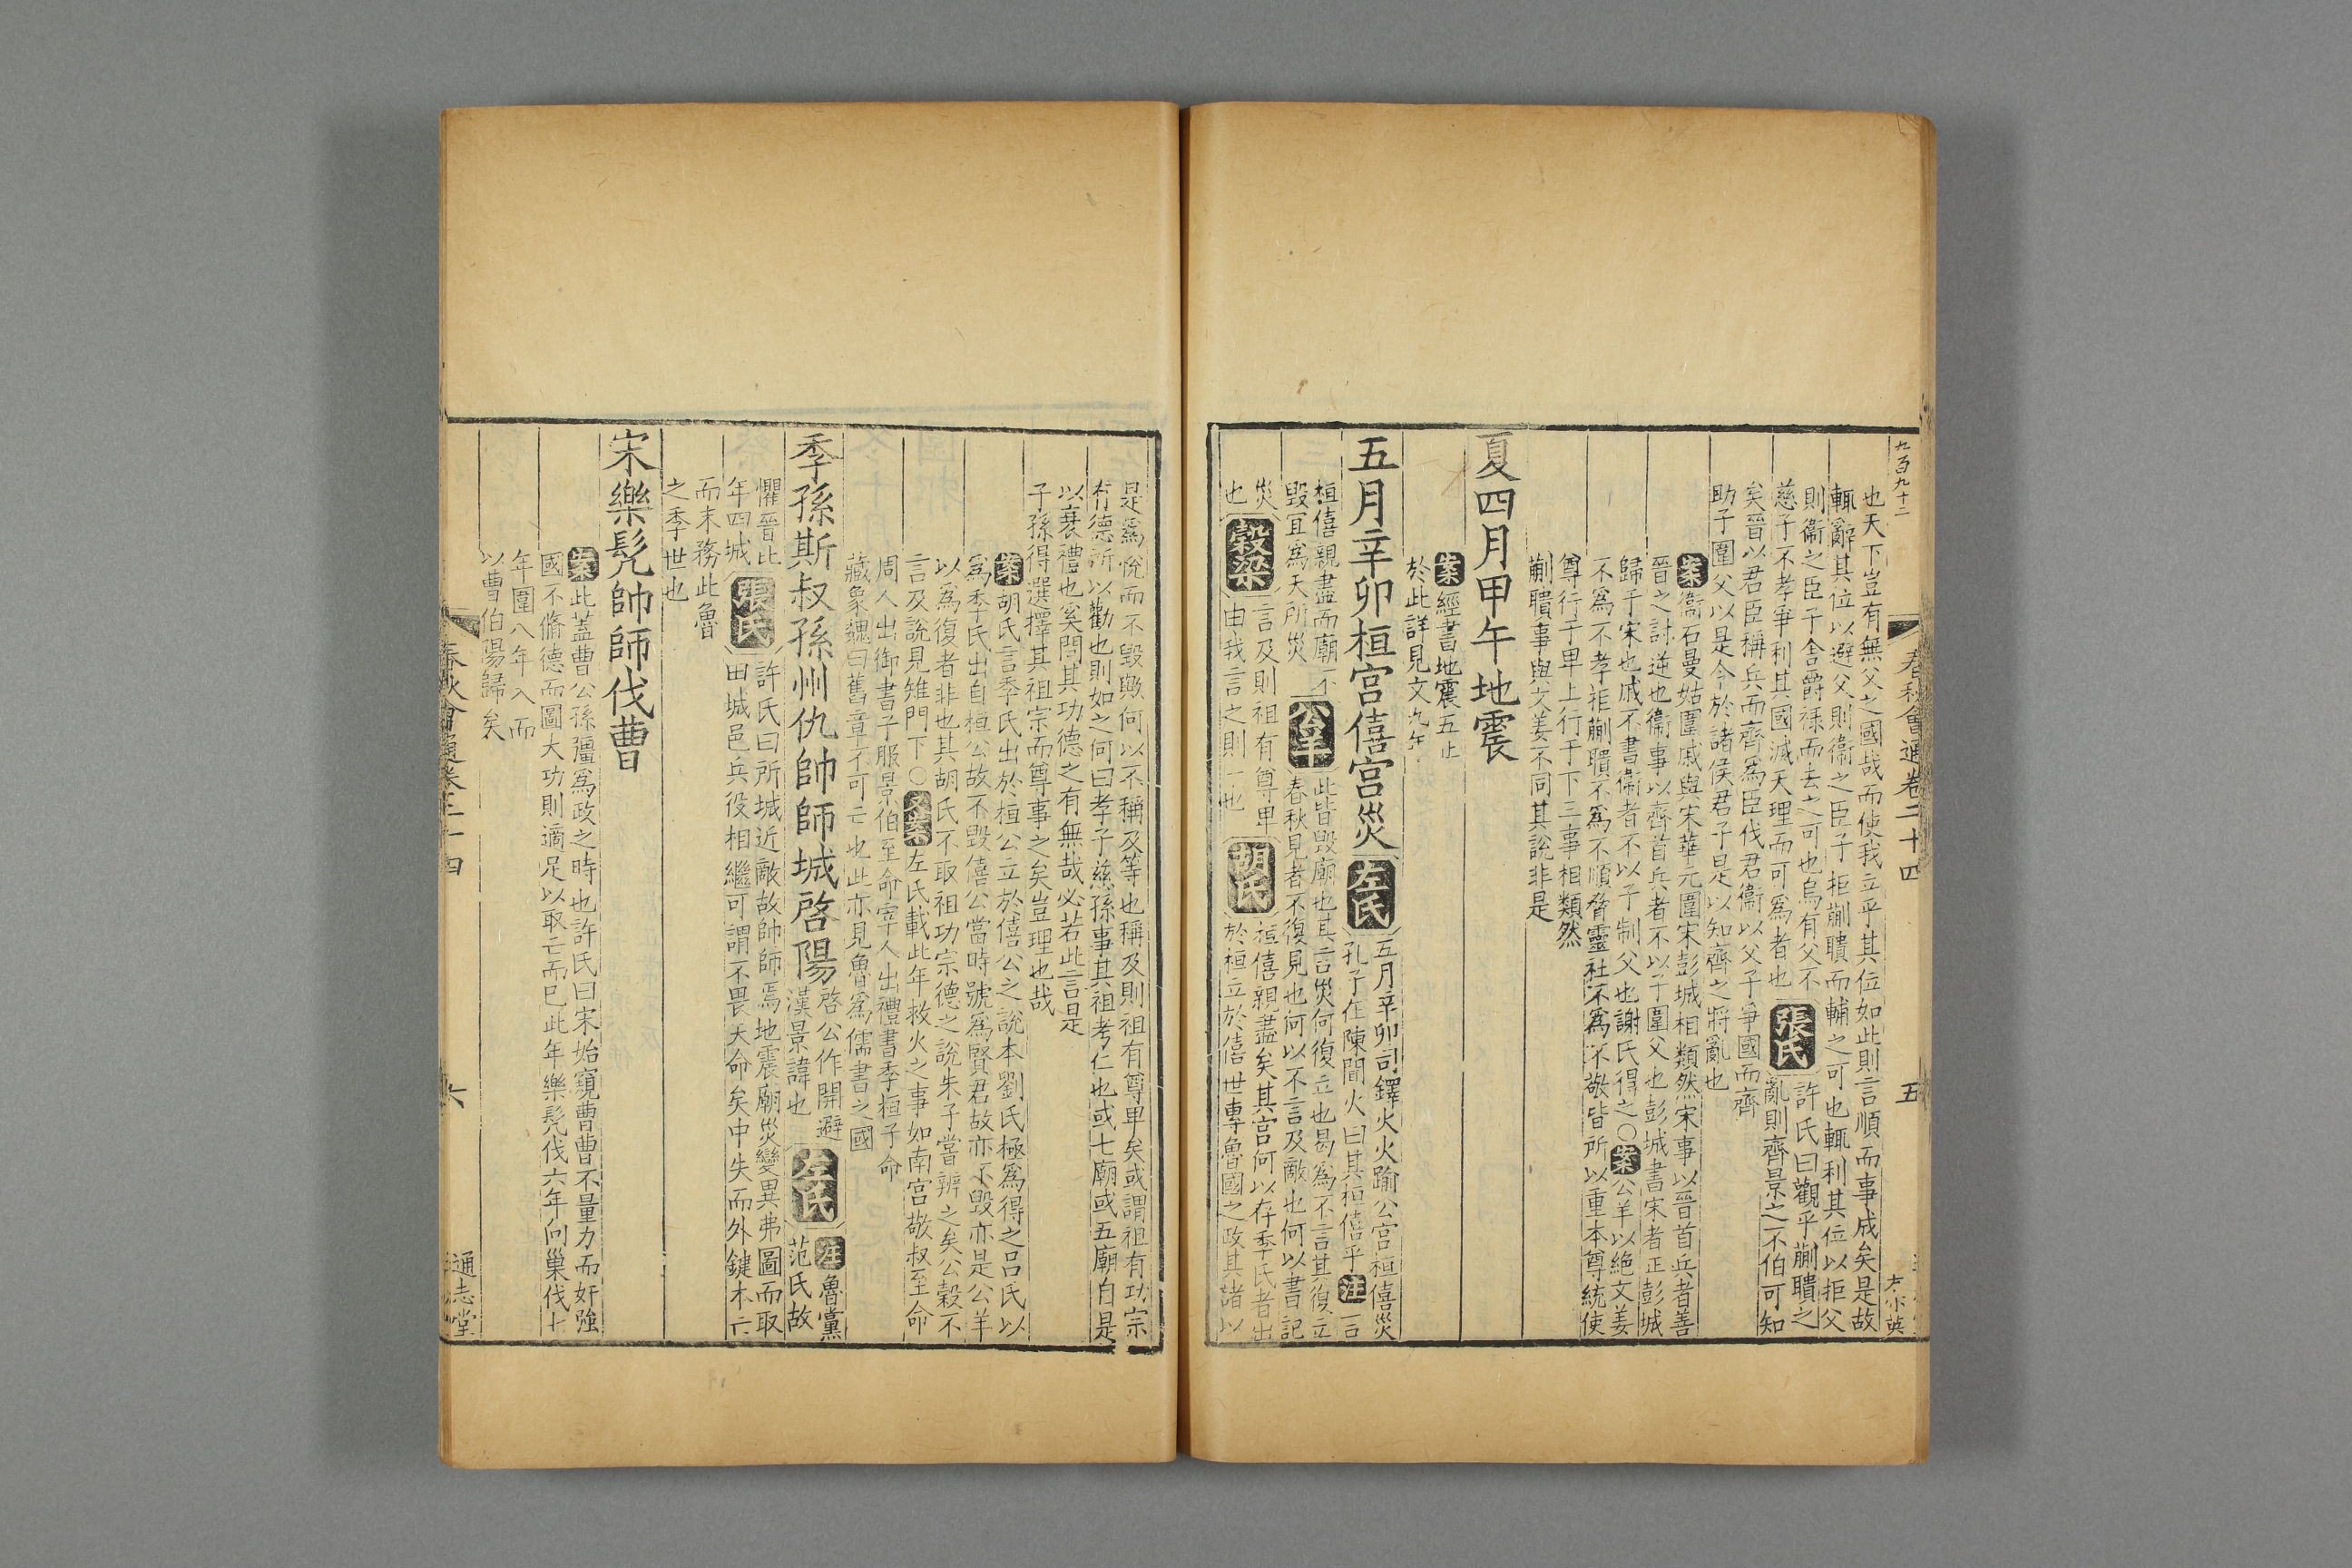 九百九十二
春秋會通卷二十四
五
也天下豈有無父之國哉而使我立乎其位如此則言順而事成矣是故
輒辭其位以避父則衞之臣子拒蒯聵而輔之可也輒利其位以拒父
則衞之臣子舍爵祿而去之可也烏有父不
慈子不孝爭利其國滅天理而可爲者也
張氏
許氏曰觀乎蒯聵之
亂則齊景之不伯可知
矣晉以君臣稱兵而齊爲臣伐君衞以父子爭國而齊
助子圍父以是令於諸侯君子是以知齊之將亂也
案衞石曼姑圍戚與宋華元圍宋彭城相類然宋事以晉首兵者善
晉之討逆也衞事以齊首兵者不以子圍父也彭城書宋者正彭城
歸于宋也戚不書衞者不以子制父也謝氏得之○案公羊以絶文姜
不爲不孝拒蒯聵不爲不順脅靈社不爲不敬皆所以重本尊統使
尊行于卑上行于下三事相類然
蒯聵事與文姜不同其說非是
夏四月甲午地震
案經書地震五止
於此詳見文九年
五月辛卯桓宮僖宮災
左氏
五月辛卯司鐸火火踰公宮桓僖災
孔子在陳聞火曰其桓僖乎注言
桓僖親盡而廟不
毀宜爲天所災
公羊
此皆毀廟也其言災何復立也曷爲不言其復立
春秋見者不復見也何以不言及敵也何以書記
災
也
穀梁
言及則祖有尊卑
由我言之則一也
胡氏
桓僖親盡矣其宮何以存季氏者出
於桓立於僖世專魯國之政其諸以
是爲悅而不毀歟何以不稱及等也稱及則祖有尊卑矣或謂祖有功宗
有德所以勸也則如之何曰孝子慈孫事其祖考仁也或七廟或五廟自是
以衰禮也奚問其功德之有無哉必若此言是
子孫得選擇其祖宗而尊事之矣豈理也哉
案胡氏言季氏出於桓公立於僖公之說本劉氏極爲得之呂氏以
爲季氏出自桓公故不毀僖公當時號爲賢君故亦不毀亦是公羊
以爲復者非也其胡氏不取祖功宗德之說朱子嘗辨之矣公穀不
言及說見雉門下○又案左氏載此年救火之事如南宮敬叔至命
周人出御書子服景伯至命宰人出禮書季桓子命
藏象魏曰舊章不可亡也此亦見魯爲儒書之國
季孫斯叔孫州仇帥師城啓陽
啓公作開避
漢景諱也
左氏
注魯黨
范氏故
懼晉比
年四城
張氏
許氏曰所城近敵故帥師焉地震廟災變異弗圖而取
田城邑兵役相繼可謂不畏天命矣中失而外鍵本亡
而末務此魯
之季世也
宋樂髠帥師伐曹
案此蓋曹公孫彊爲政之時也許氏曰宋始窺曹曹不量力而奸强
國不脩德而圖大功則適足以取亡而已此年樂髠伐六年向巢伐七
年圍八年入而
以曹伯陽歸矣
春秋會通卷二十四
六
通志堂